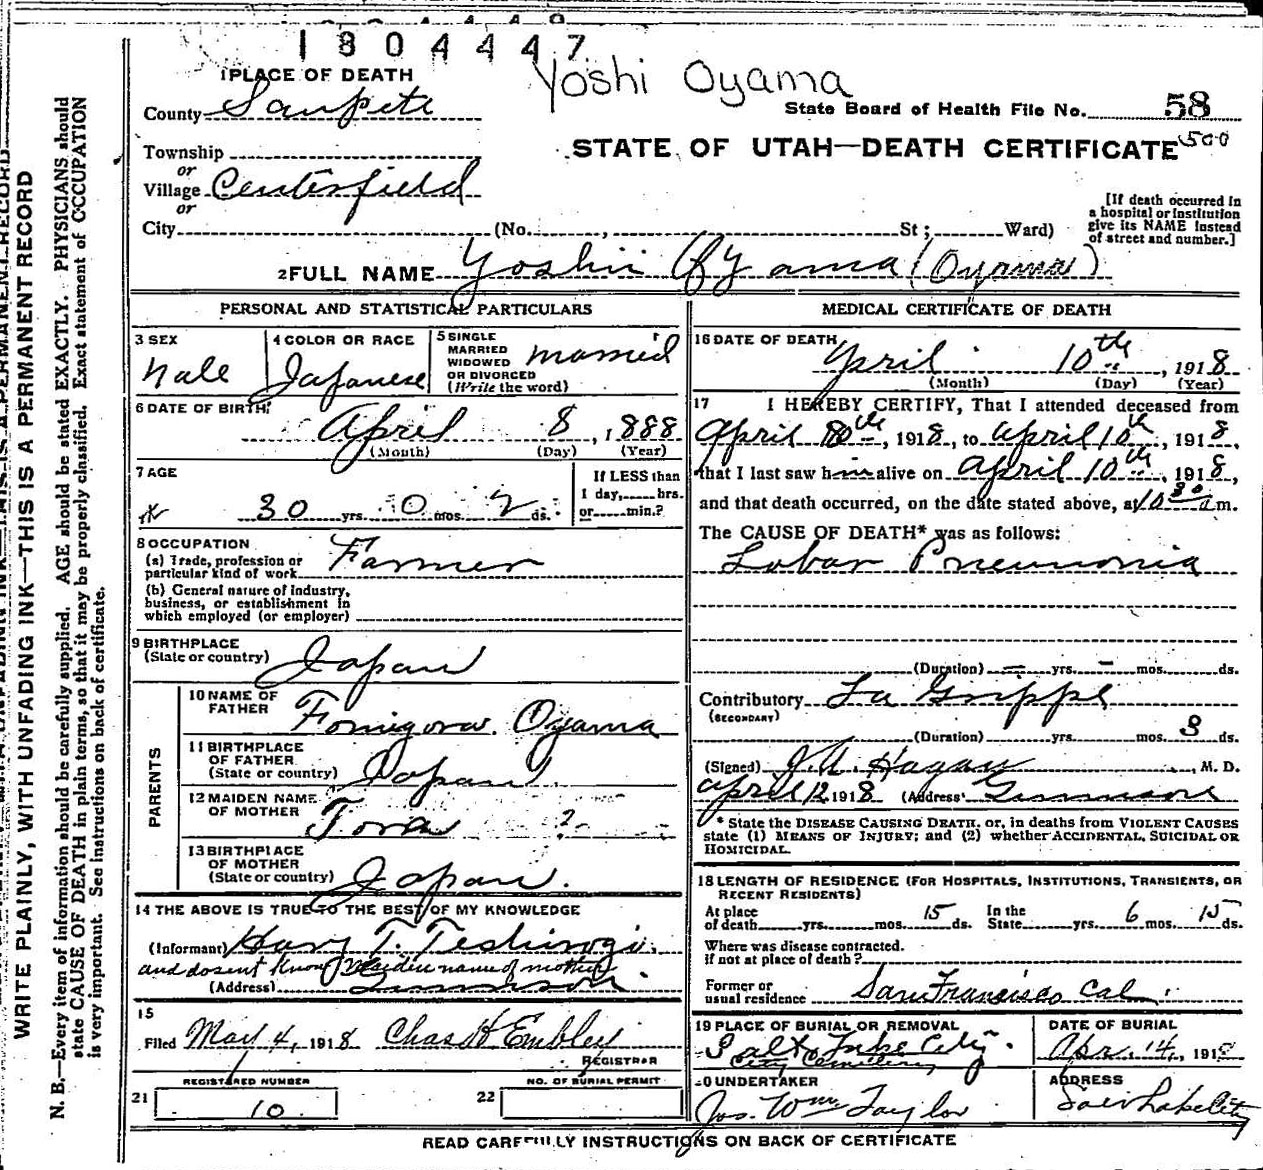 1804447
Yoshi Oyama
1 PLACE OF DEATH
County Sanpete
State Board of Health File No. 58
500
STATE OF UTAH—DEATH CERTIFICATE
Township
or
Village Centerfield
or
City (No. , St ; Ward)
[If death occurred in a hospital or institution give its NAME instead of street and number.]
2 FULL NAME Yoshii Oyama (Oyama)
PERSONAL AND STATISTICAL PARTICULARS
3 SEX Male
4 COLOR OR RACE Japanese
5 SINGLE MARRIED WIDOWED OR DIVORCED (Write the word) married
6 DATE OF BIRTH: April 8, 1888
(Month) (Day) (Year)
7 AGE
30 yrs. 0 mos. 2 ds.
If LESS than 1 day, hrs. or min.?
8 OCCUPATION
(a) Trade, profession or particular kind of work Farmer
(b) General nature of industry, business, or establishment in which employed (or employer)
9 BIRTHPLACE (State or country) Japan
PARENTS
10 NAME OF FATHER Oyama
11 BIRTHPLACE OF FATHER (State or country) Japan
12 MAIDEN NAME OF MOTHER Tora ?
13 BIRTHPLACE OF MOTHER (State or country) Japan.
14 THE ABOVE IS TRUE TO THE BEST OF MY KNOWLEDGE
(Informant) Harry T. Teshirogi.
and dosent know maiden name of mother
(Address) Gunnison
15
Filed May 4, 1918 Chas H Embley
REGISTRAR
REGISTERED NUMBER
21 10
NO. OF BURIAL PERMIT
22
MEDICAL CERTIFICATE OF DEATH
16 DATE OF DEATH April 10th, 1918
(Month) (Day) (Year)
17 I HEREBY CERTIFY, That I attended deceased from
April th, 1918, to April 10th, 1918,
that I last saw him alive on April 10th, 1918,
and that death occurred, on the date stated above, at 10 30 a m.
The CAUSE OF DEATH* was as follows:
Lobar Pneumonia
(Duration) – yrs. – mos. ds.
Contributory La Grippe
(SECONDARY)
(Duration) yrs. mos. 3 ds.
(Signed) J.A. Hagan, M. D.
April 12, 1918 (Address) Gunnison
* State the DISEASE CAUSING DEATH, or, in deaths from VIOLENT CAUSES state (1) MEANS OF INJURY; and (2) whether ACCIDENTAL, SUICIDAL OR HOMICIDAL.
18 LENGTH OF RESIDENCE (FOR HOSPITALS, INSTITUTIONS, TRANSIENTS, OR RECENT RESIDENTS)
At place of death yrs. mos. 15 ds. In the State yrs. 6 mos. 15 ds.
Where was disease contracted. if not at place of death?
Former or usual residence San Francisco Cal.
19 PLACE OF BURIAL OR REMOVAL Salt Lake City.
City Cemetery
DATE OF BURIAL Apr. 14, 1918
20 UNDERTAKER Jos. Wm Taylor
ADDRESS Salt Lake City
READ CAREFULLY INSTRUCTIONS ON BACK OF CERTIFICATE
WRITE PLAINLY, WITH UNFADING INK—THIS IS A PERMANENT RECORD
N. B.—Every item of information should be carefully supplied. AGE should be stated EXACTLY. PHYSICIANS should
state CAUSE OF DEATH in plain terms, so that it may be properly classified. Exact statement of OCCUPATION
is very important. See instructions on back of certificate.